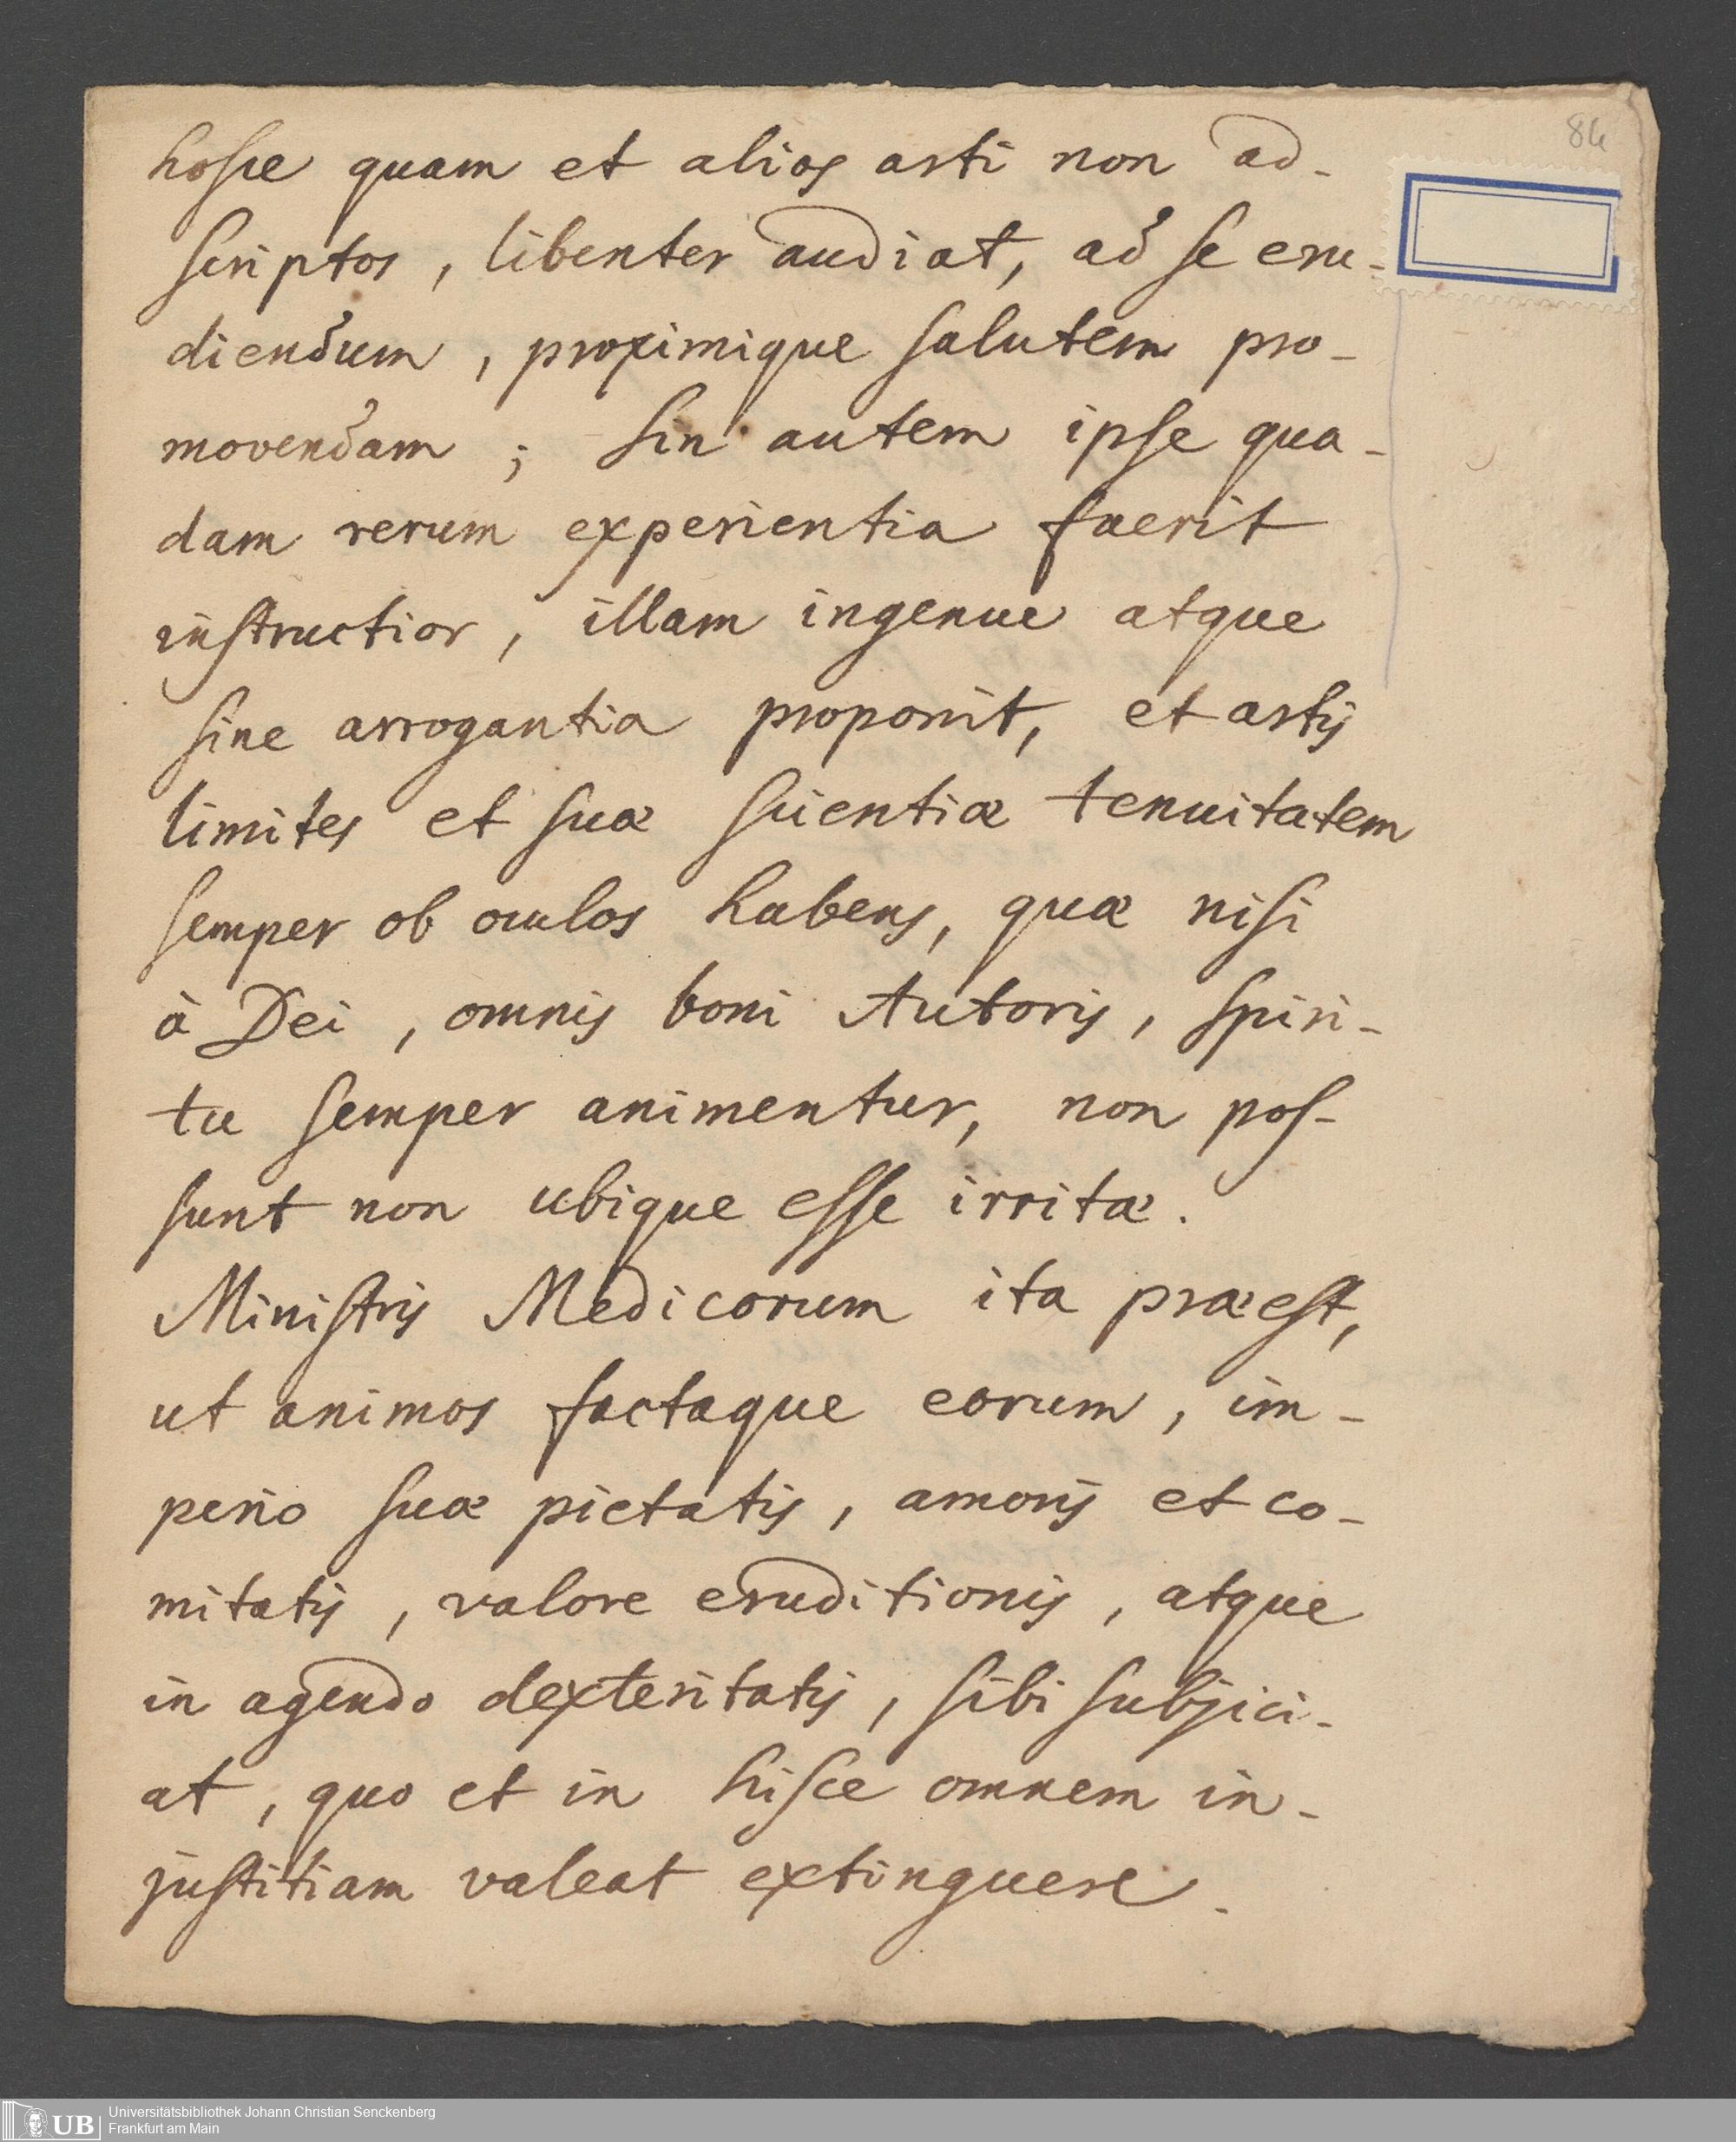 84
hosce quam et alios arti non ad-
scriptos, libenter audiat, ad se eru-
diendum, proximique salutem pro-
movendam; sin autem ipse qua-
dam rerum experientia fuerit
instructior, illam ingenue atque
sine arrogantia proponit, et artis
limites et suæ scientiæ tenuitatem
semper ob oculos habens, quæ nisi
à Dei, omnis boni Autoris, spiri-
tu semper animentur, non pos-
sunt non ubique esse irritæ.
Ministris Medicorum ita præest,
ut animos factaque eorum, im-
perio suæ pietatis, amoris et co-
mitatis, valore eruditionis, atque
in agendo dexteritatis, sibi subjici-
at, quo et in hisce omnem in-
justitiam valeat extinguere.
UB
Universitätsbibliothek Johann Christian Senckenberg
Frankfurt am Main